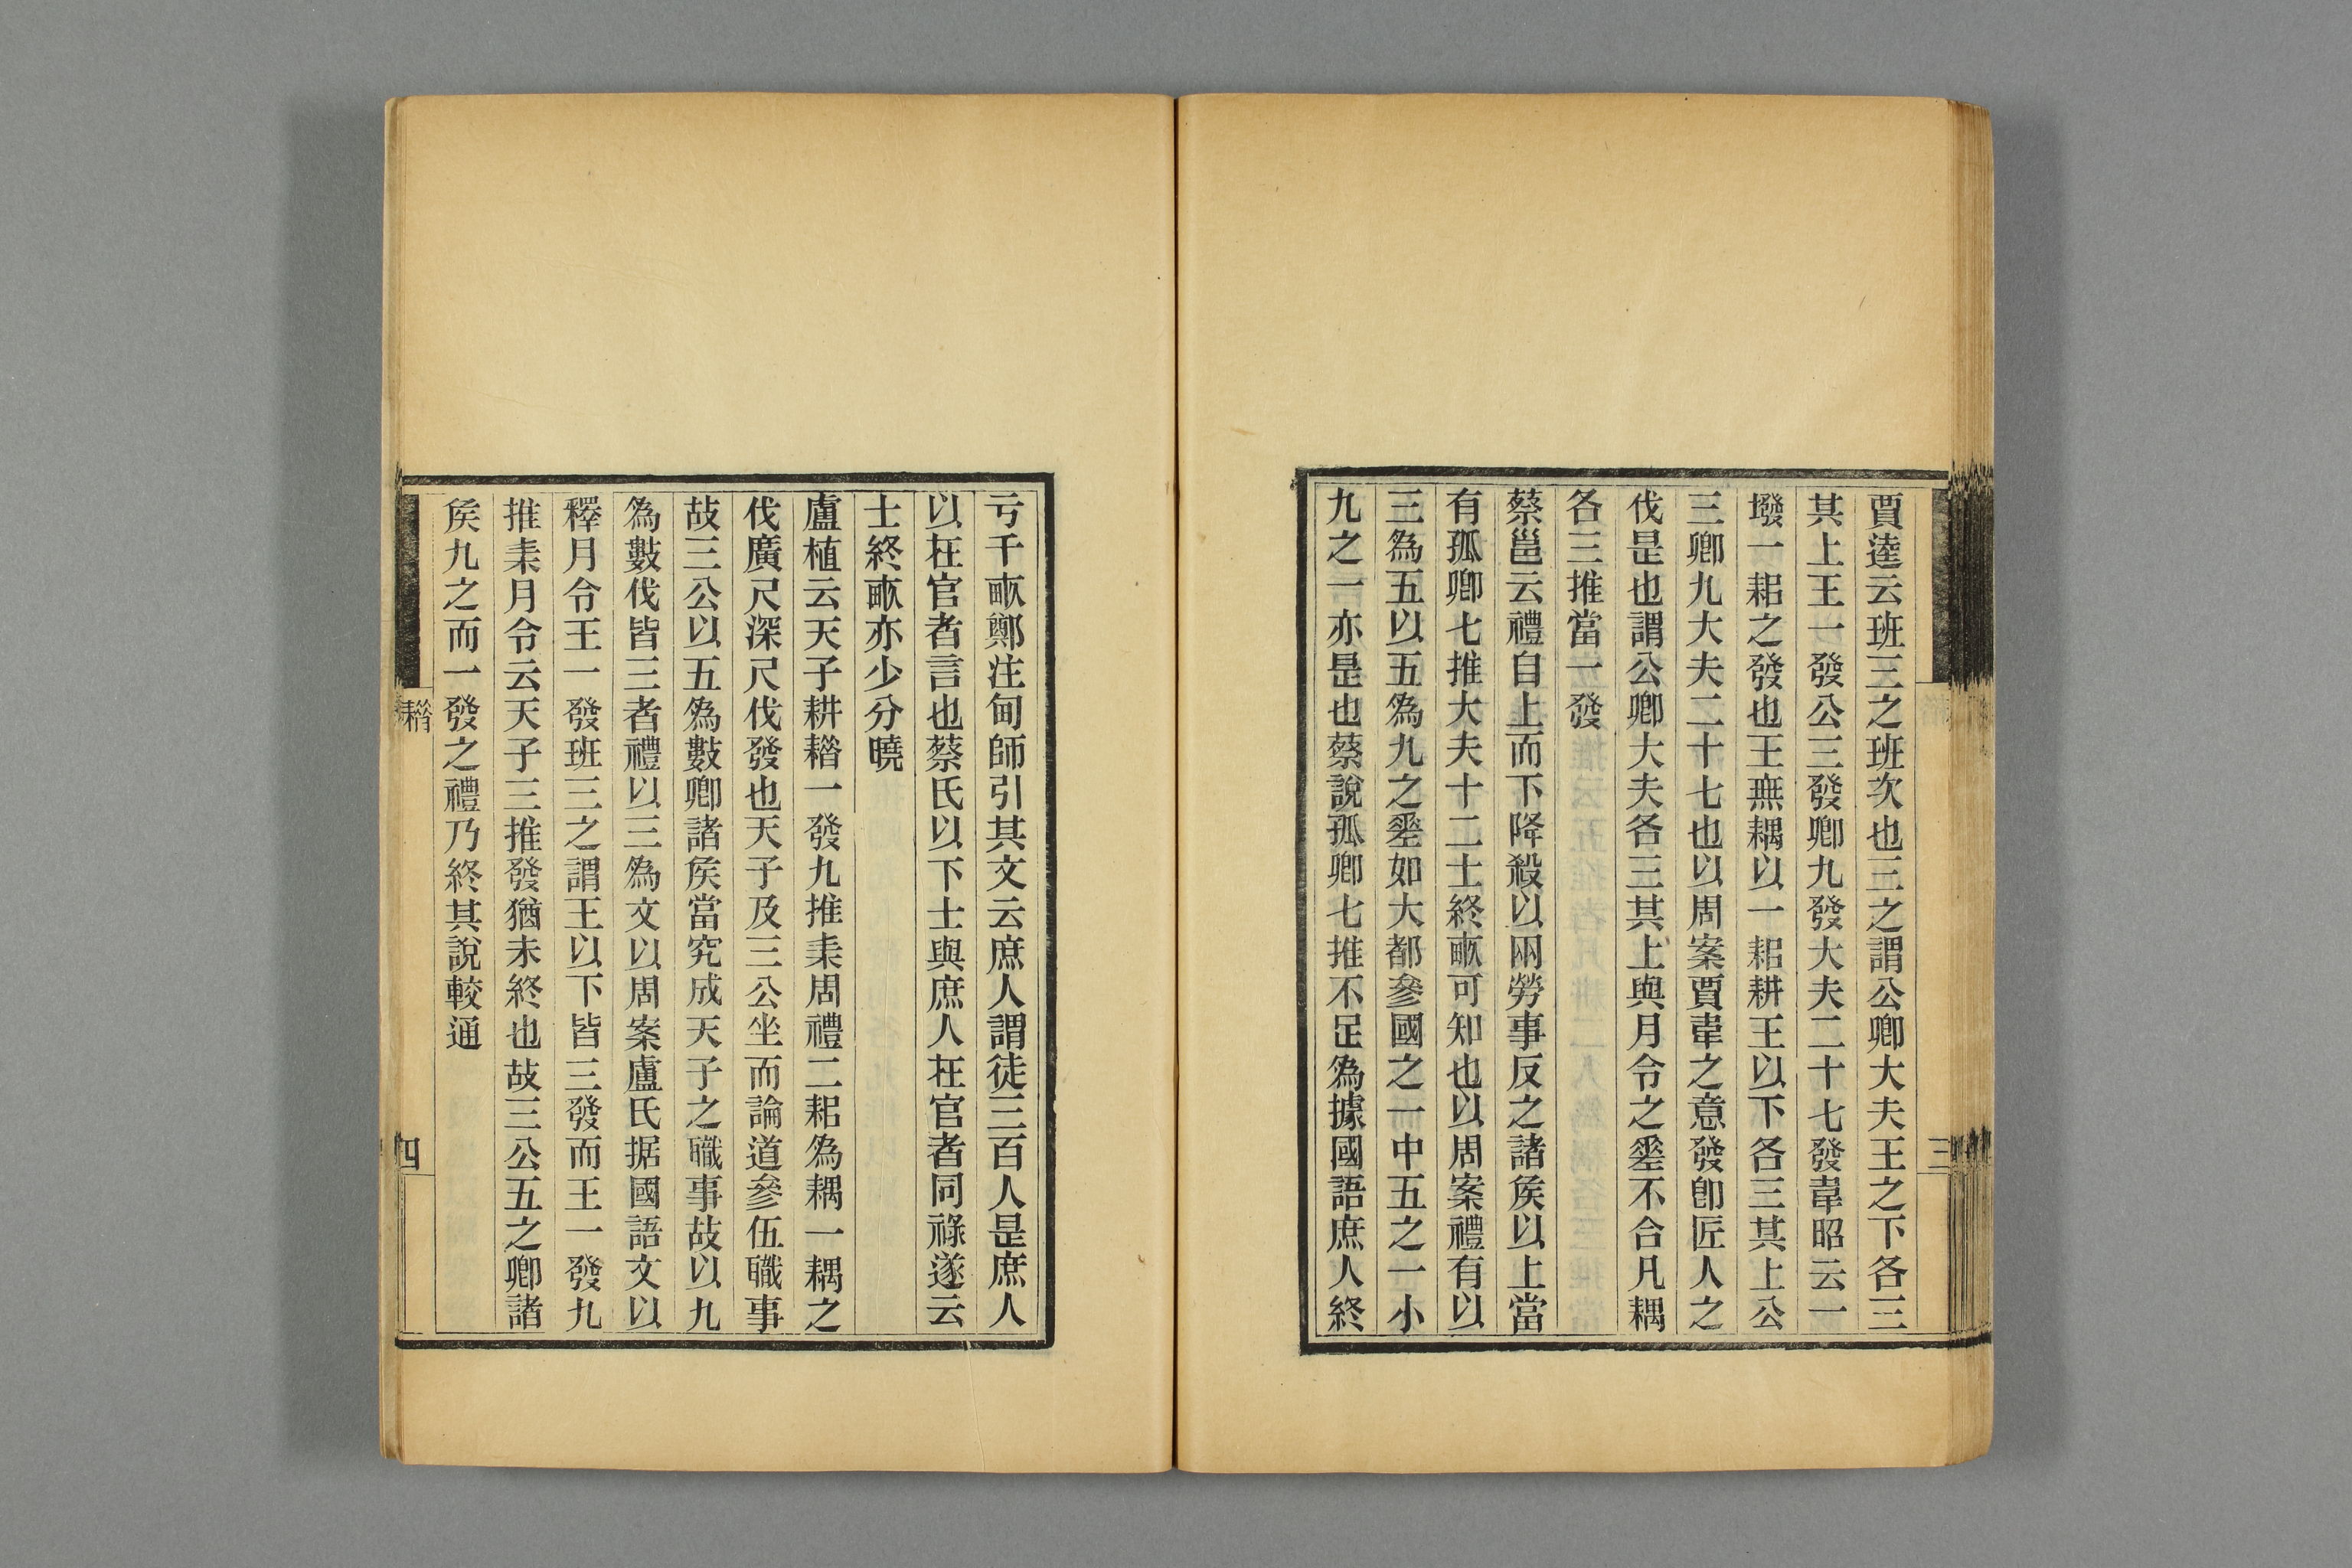 賈逵云班三之班次也三之謂公卿大夫王之下各三
其上王一發公三發卿九發大夫二十七發韋昭云一
墢一耜之發也王無耦以一耜耕王以下各三其上公
三卿九大夫二十七也以周案賈韋之意發卽匠人之
伐是也謂公卿大夫各三其上與月令之𡍮不合凡耦
各三推當一發
蔡邕云禮自上而下降殺以兩勞事反之諸矦以上當
有孤卿七推大夫十二士終畞可知也以周案禮有以
三爲五以五爲九之𡍮如大都參國之一中五之一小
九之一亦是也蔡說孤卿七推不足爲據國語庶人終
亏千畞鄭注甸師引其文云庶人謂徒三百人是庶人
以在官者言也蔡氏以下士與庶人在官者同祿遂云
士終畞亦少分曉
盧植云天子耕耤一發九推耒周禮二耜爲耦一耦之
伐廣尺深尺伐發也天子及三公坐而論道參伍職事
故三公以五爲數卿諸矦當究成天子之職事故以九
爲數伐皆三者禮以三爲文以周案盧氏据國語文以
釋月令王一發班三之謂王以下皆三發而王一發九
推耒月令云天子三推發猶未終也故三公五之卿諸
矦九之而一發之禮乃終其說較通
三
四